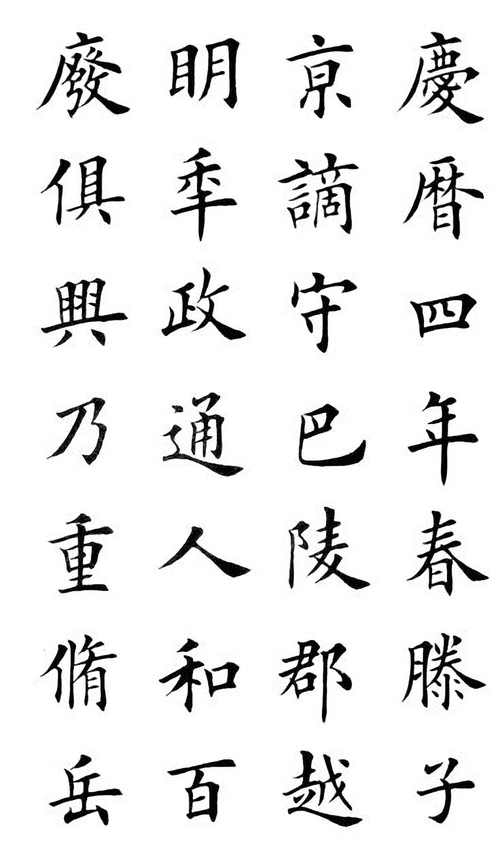 慶曆四年春滕子
京謫守巴陵郡越
明秊政通人和百
廢俱興乃重脩岳